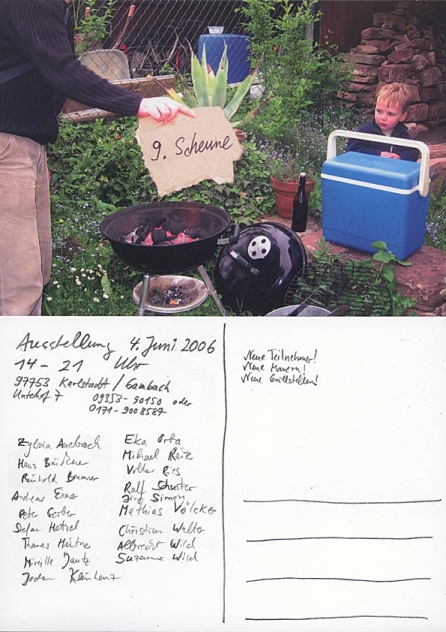 9. Scheune
Ausstellung 4. Juni 2006
14 - 21 Uhr
97753 Karlstadt / Gambach
7 09353 - 90150 oder
0171 - 9008587
Neue Teilnehmer!
Neue Mauern!
Neue Grillstellen!
Auerbach
Hans
Reinhold Brunner
Andrea
Peter Gerber
Stefan Hetzel
Thomas
Mireille Jautz
Eka Orba
Michael
Volker Ries
Ralf Schuster
Jörg Simon
Mathias Völcker
Christian Walter
Albrecht Wild
Suzanne Wild